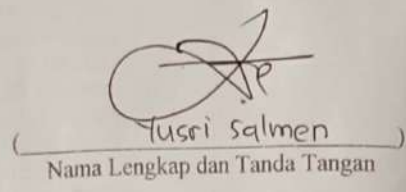 Yusri Salmen
( )
Nama Lengkap dan Tanda Tangan